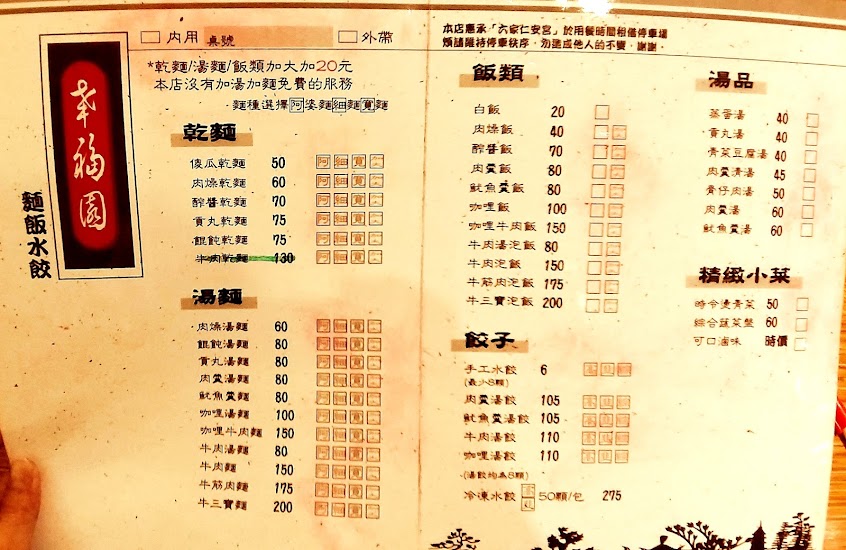 幸福園
麵飯水餃
□ 內用 桌號 □ 外帶
*乾麵/湯麵/飯類加大加20元
本店沒有加湯加麵免費的服務
麵種選擇阿婆麵細麵寬麵
乾麵
傻瓜乾麵 50 阿 細 寬
肉燥乾麵 60 阿 細 寬
酢醬乾麵 70 阿 細 寬
貢丸乾麵 75 阿 細 寬
餛飩乾麵 75 阿 細 寬
牛肉乾麵 130 阿 細 寬
湯麵
肉燥湯麵 60 阿 細 寬
餛飩湯麵 80 阿 細 寬
貢丸湯麵 80 阿 細 寬
肉羹湯麵 80 阿 細 寬
魷魚羹麵 80 阿 細 寬
咖哩湯麵 100 阿 細 寬
咖哩牛肉麵 150 阿 細 寬
牛肉湯麵 80 阿 細 寬
牛肉麵 150 阿 細 寬
牛筋肉麵 175 阿 細 寬
牛三寶麵 200 阿 細 寬
本店惠承「大家仁安宮」於用餐時間租借停車場
煩請維持停車秩序，勿造成他人的不要，謝謝。
飯類
白飯 20
肉燥飯 40
酢醬飯 70
肉羹飯 80
魷魚羹飯 80
咖哩飯 100
咖哩牛肉飯 150
牛肉湯泡飯 80
牛肉泡飯 150
牛筋肉泡飯 175
牛三寶泡飯 200
餃子
手工水餃 6
(最少8顆)
肉羹湯餃 105
魷魚羹湯餃 105
牛肉湯餃 110
咖哩湯餃 110
(湯餃均為8顆)
冷凍水餃 50顆/包 275
湯品
蛋香湯 40
貢丸湯 40
青菜豆腐湯 40
肉羹清湯 45
骨仔肉湯 50
肉羹湯 60
魷魚羹湯 60
精緻小菜
時令燙青菜 50
綜合蔬菜盤 60
可口滷味 時價